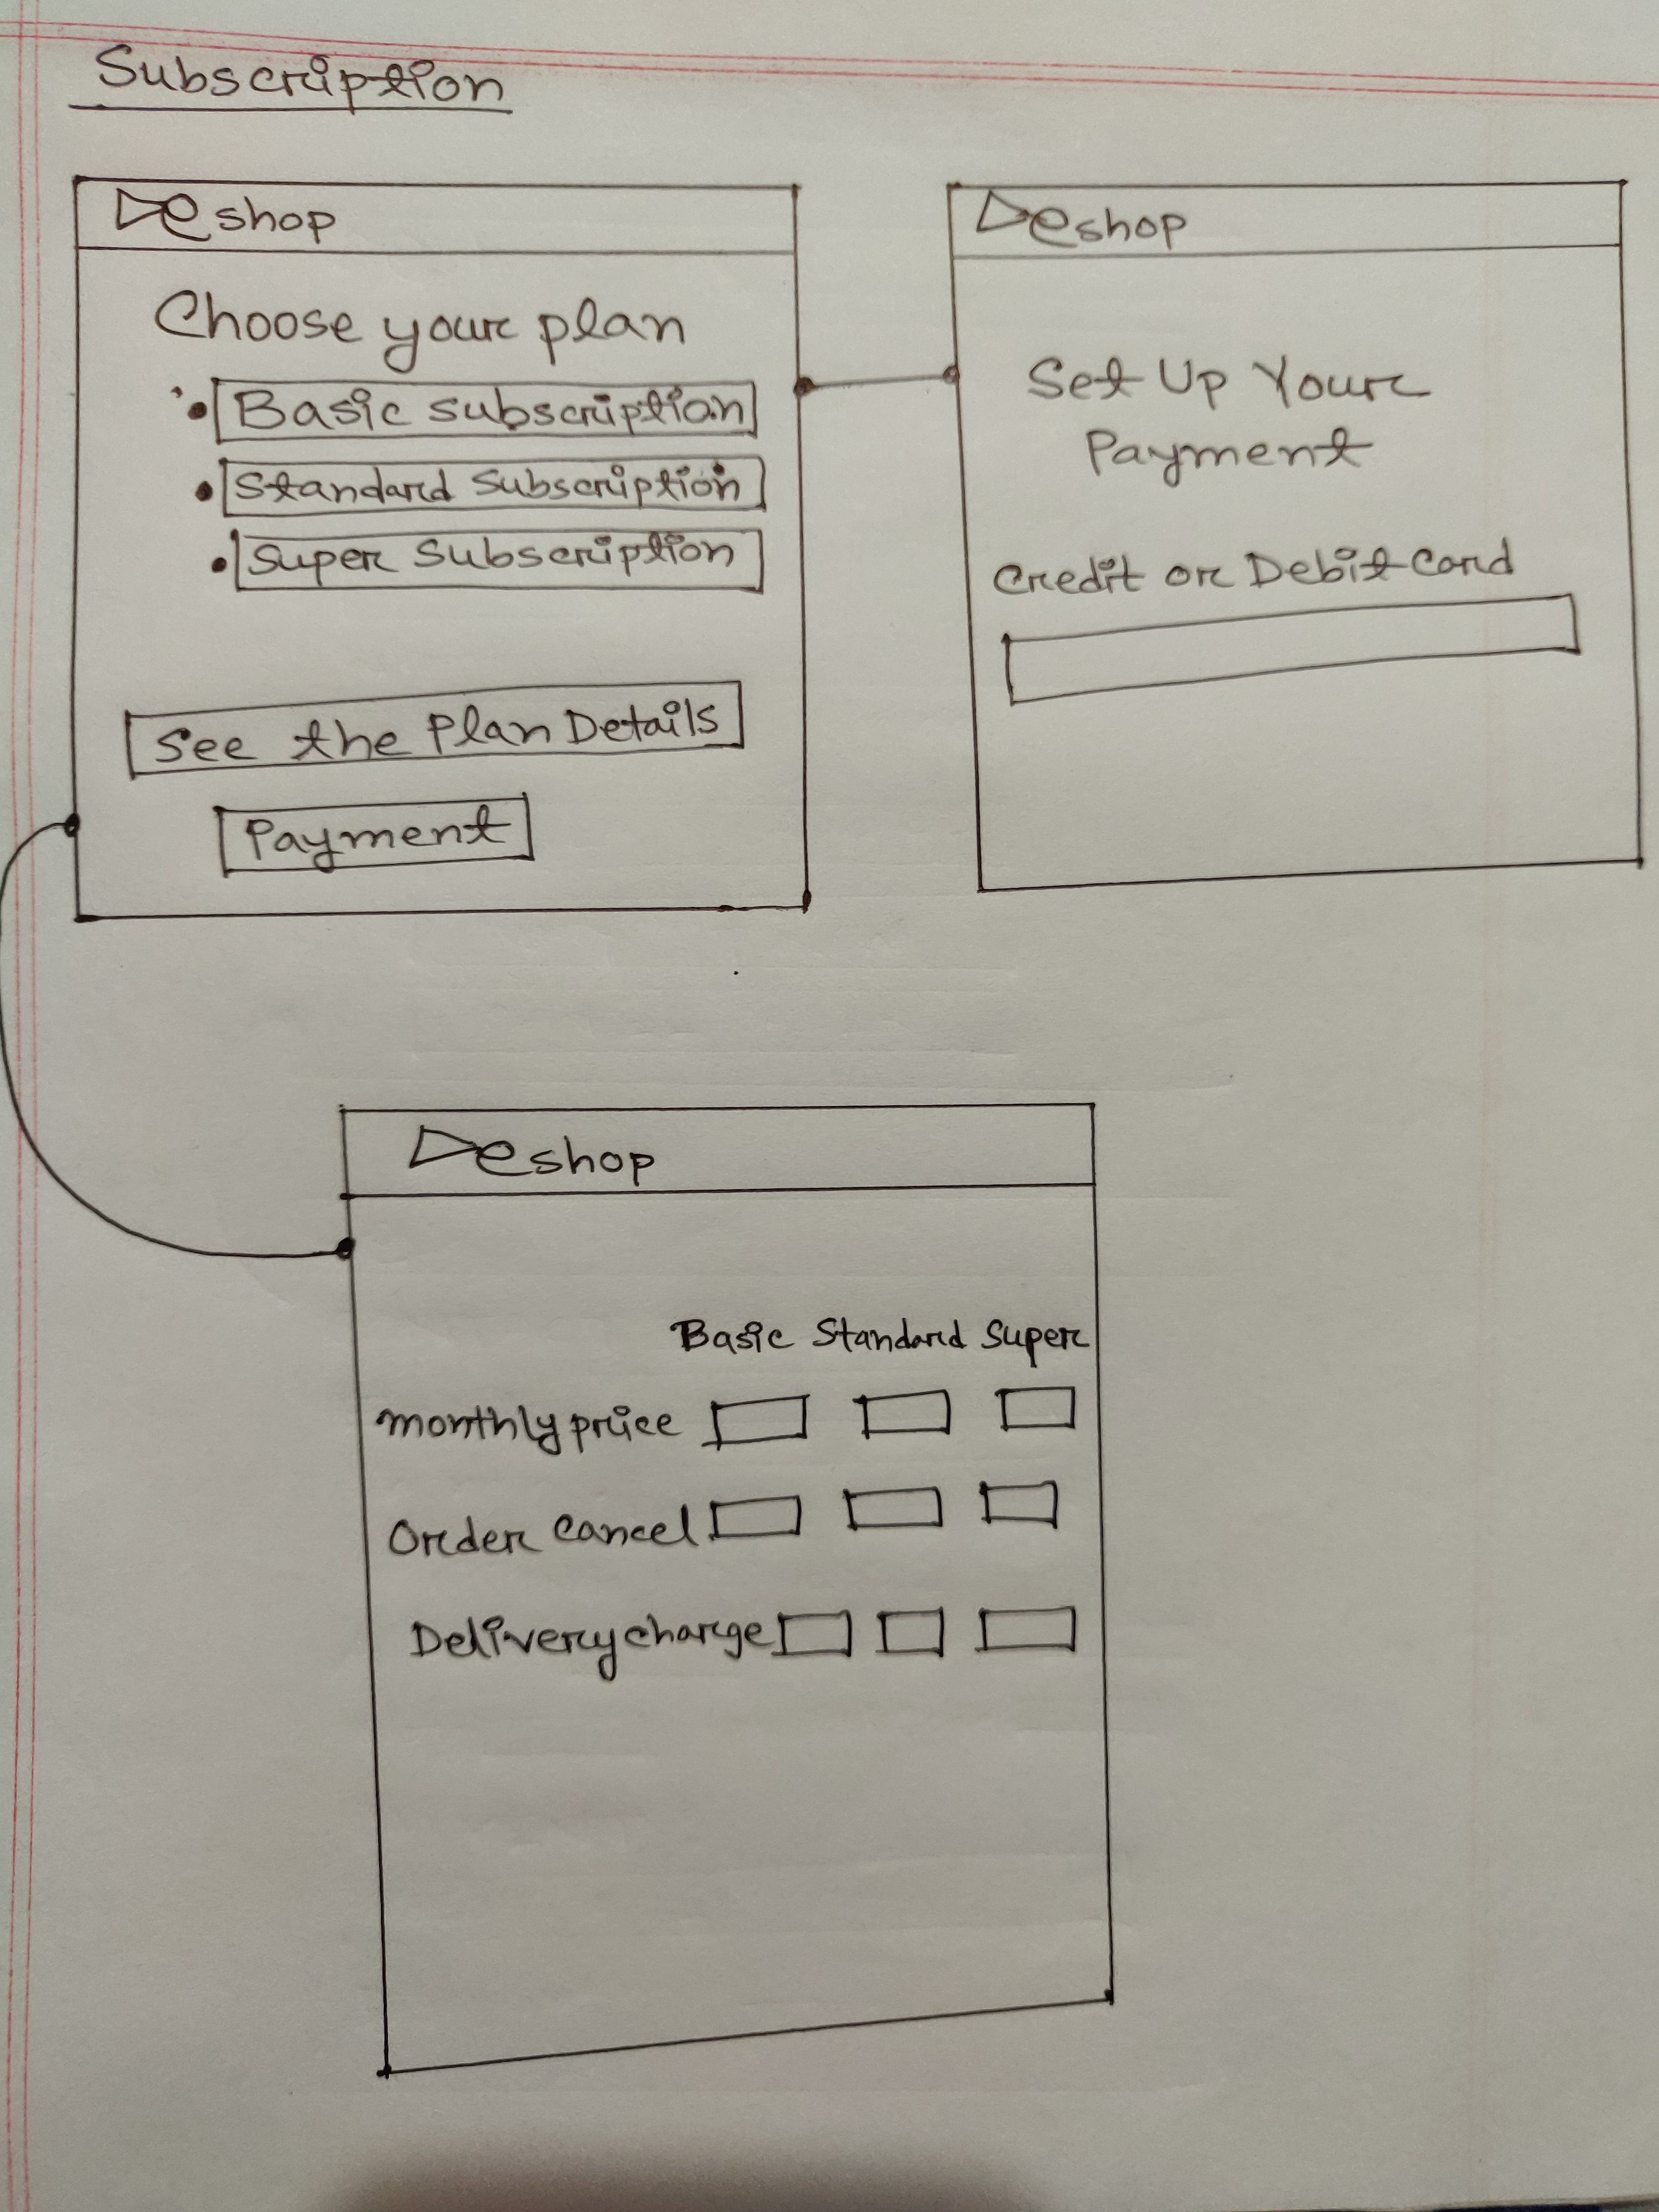 Subscription
eshop
Choose your plan
Basic subscription
Standard Subscription
Super Subscription
See the Plan Details
Payment
eshop
Set Up Your
Payment
Credit or Debit Card
eshop
Basic Standard Super
monthly price
Order Cancel
Delivery charge